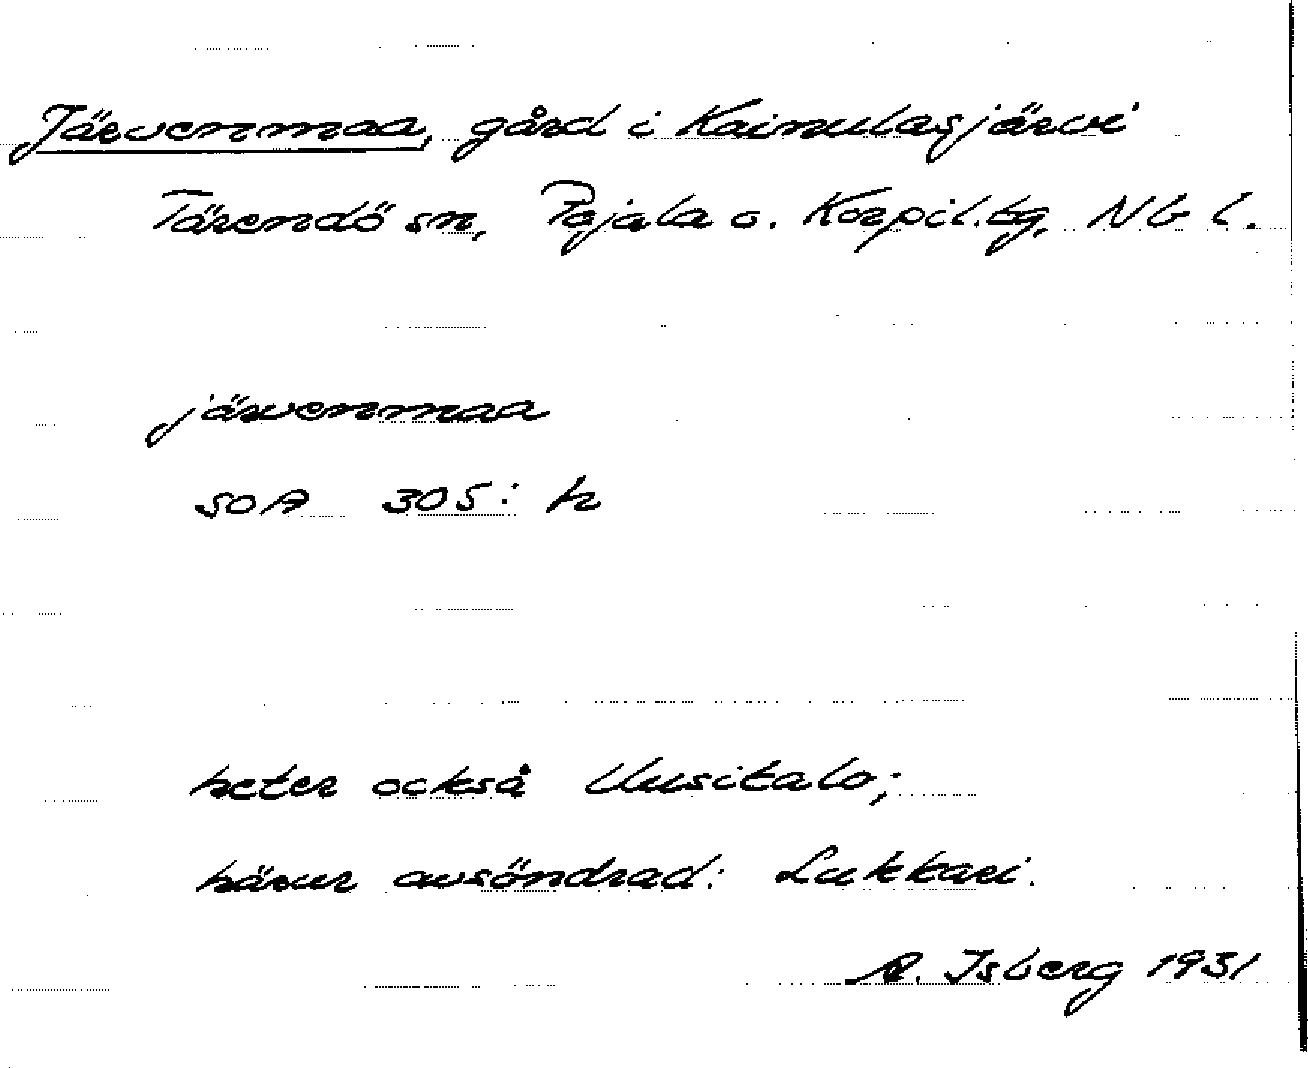 Järvenmaa, gård i Kainulasjärvi
Tärendö sn, Pajala o. Korpil. tg, Nb l.
järvenmaa
SOA 305: h
heter också Uusitalo;
härur avsöndrad: Lukkari.
A. Isberg 1931